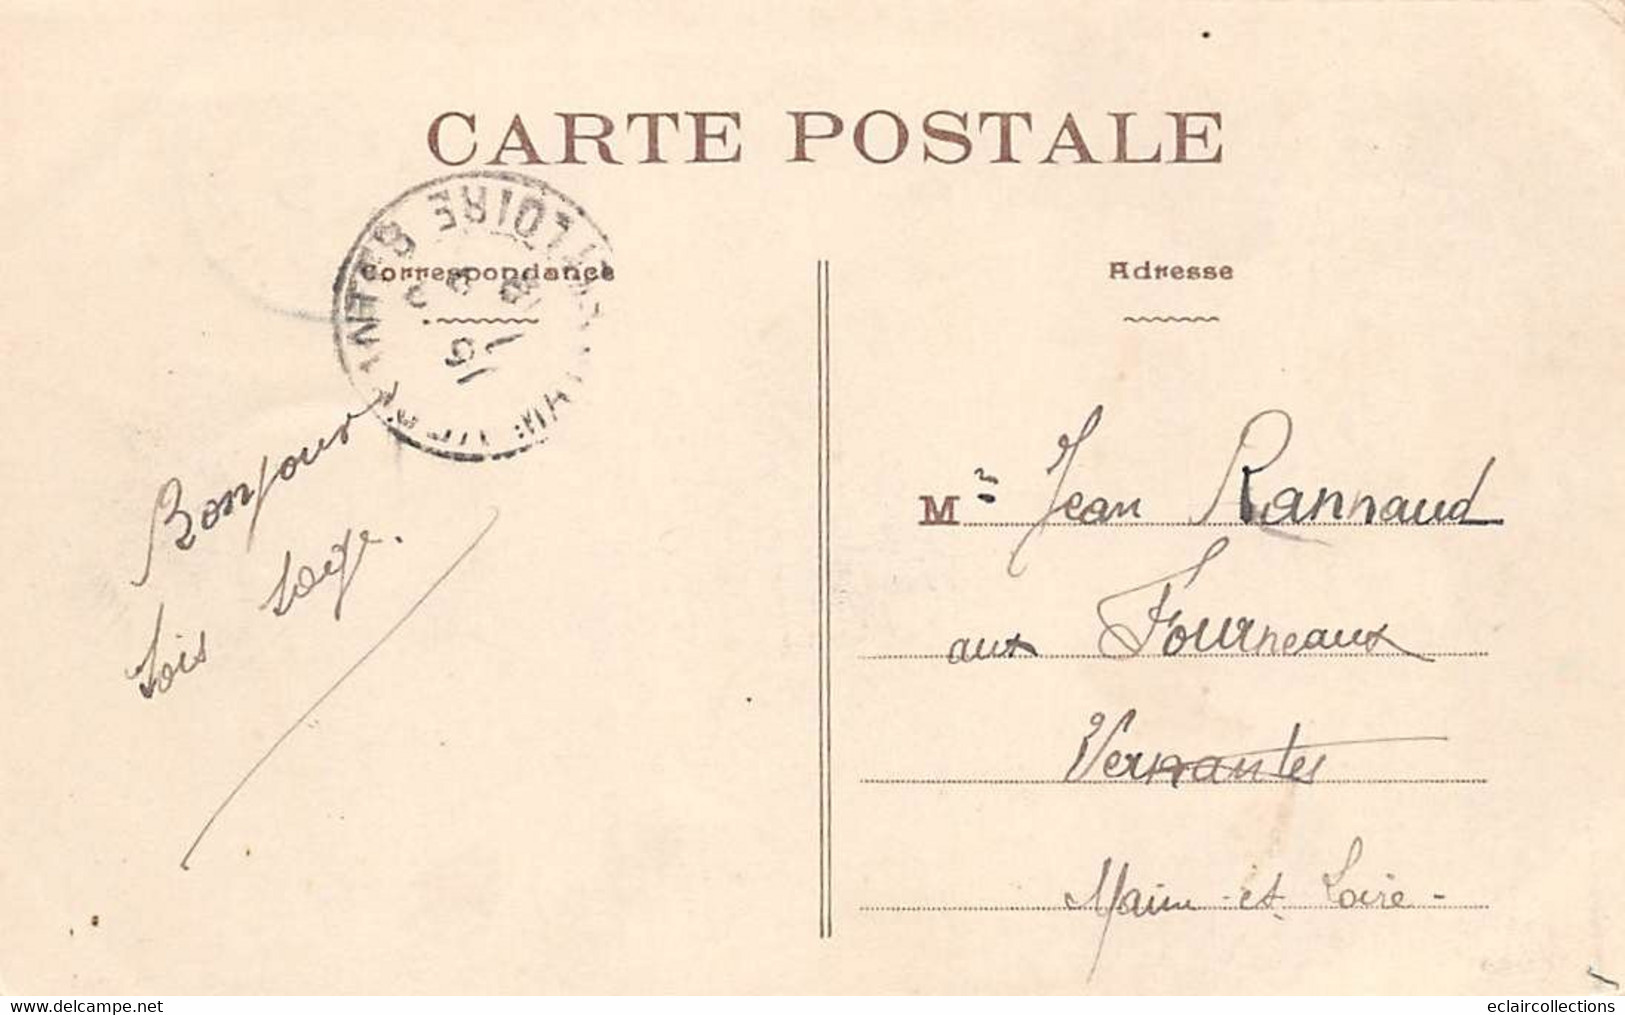 CARTE POSTALE
Correspondance
Adresse
Bonjour
Sois sage.
Mr Jean Rannaud
aux Fourneaux
Vernantes
Maine-et-Loire-
www.delcampe.net
eclaircollections